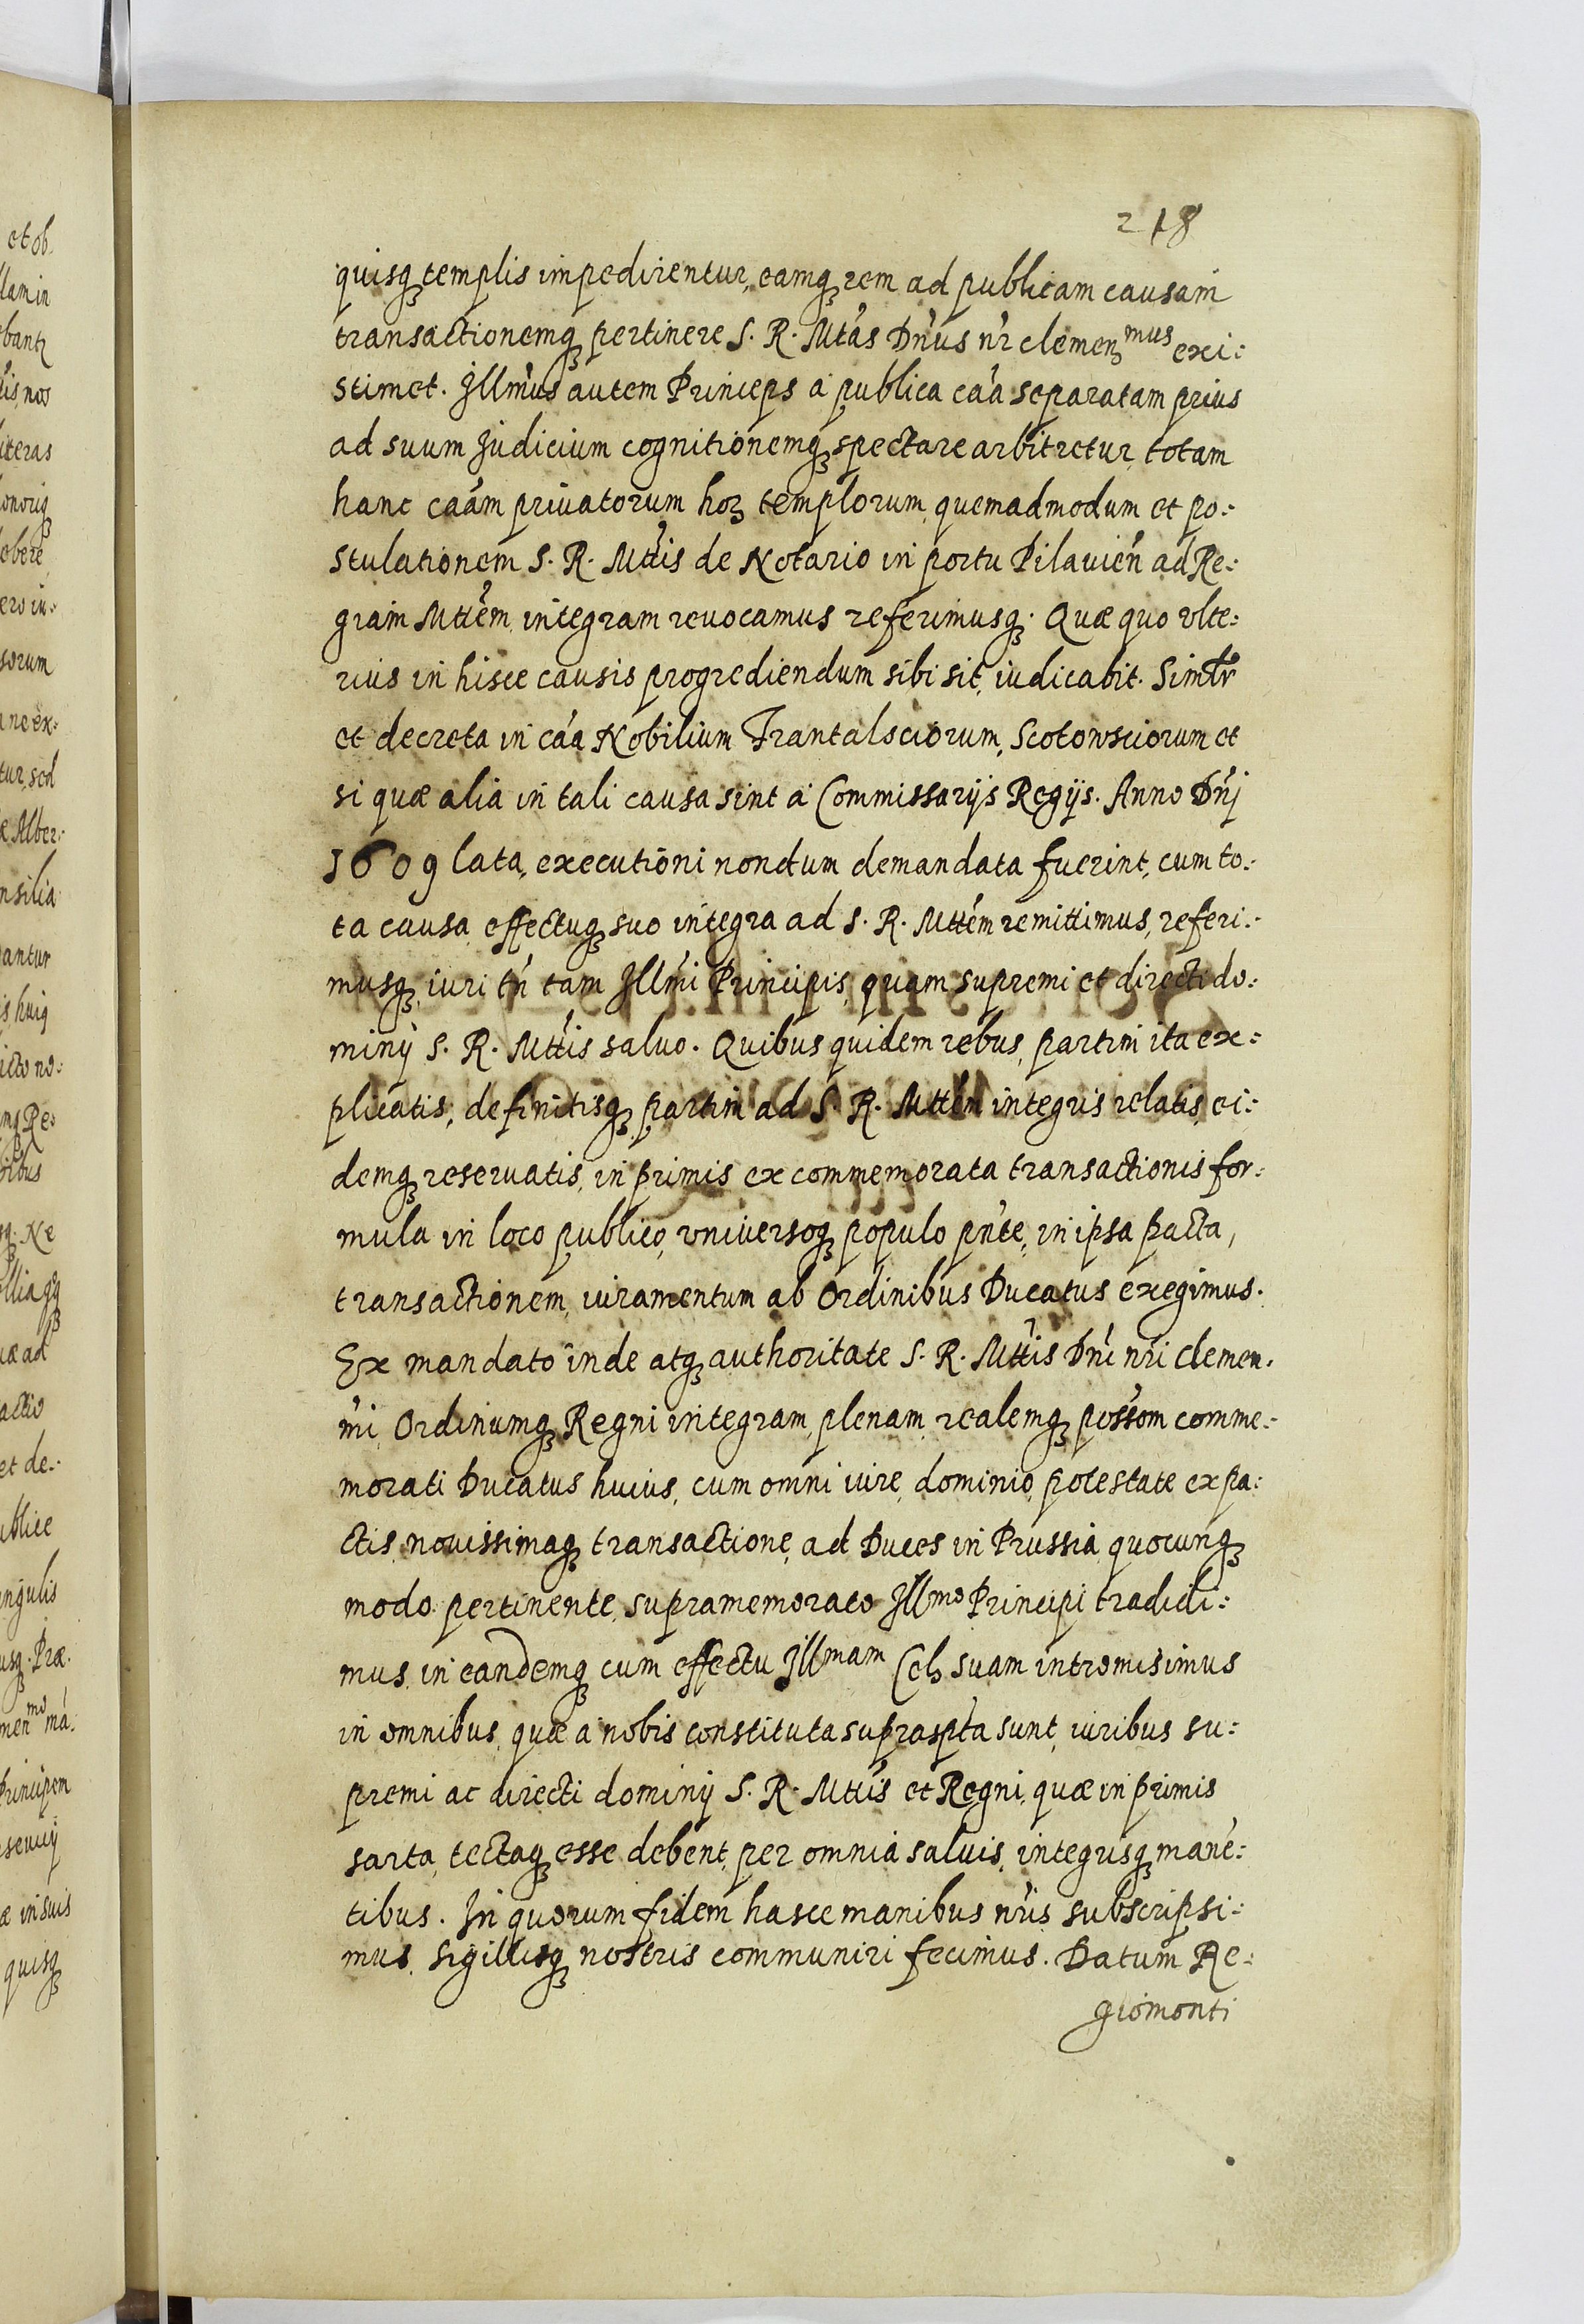 218
quisq; templis impedirentur, eamq; rem ad publicam causam
transactionemq; pertinere S. R. Mtás Dn̄us nr̄ clemen mus exi:
stimet. Illm̄us autem Princeps à publica cā́a separatam prius
ad suum Judicium cognitionemq; spectare arbitretur, totam
hanc caám priuatorum hoꝝ templorum, quemadmodum et po:
stulationem S. R. Mttis de Notario in portu Pilauień ad Re:
giam Mttem, integram reuocamus referimusq;. Quæ quo vlte:
rius in hisce causis progrediendum sibi sit, iudicabit. Simlr
et decreta in cáa Nobilium Trantalsciorum, Scotowsciorum et
si quæ alia in tali causa sint à Commissarijs Regijs. Anno Dnj
1609 lata, executioni nondum demandata fuerint, cum to:
ta causa, effectuq; suo integra ad S. R. Mttem remittimus, referi:
musq;, iuri tń tam Illmi Principis, quam supremi et directi do:
minij S. R. Mttis saluo. Quibus quidem rebus, partim ita ex:
plicatis, definitisq; partim ad S. R. Mttem integris relatis, ei:
demq; reseruatis, in primis ex commemorata transactionis for:
mula in loco publico, vniversoq; populo pńte, in ipsa pacta,
transactionem, iuramentum ab Ordinibus Ducatus exegimus.
Ex mandato inde atq; authoritate S. R. Mttis Dńi nri clemen.
mi, Ordinumq; Regni integram, plenam, realemq; possom comme:
morati Ducatus huius, cum omni iure, dominio, potestate ex pa:
ctis, nouissimaq; transactione, ad Duces in Prussia, quocunq;
modo pertinente, supramemorato Ill mo Principi tradidi:
mus, in eandemq; cum effectu Ill mam Celꝫ suam intromisimus
in omnibus, quæ à nobis constituta supraspta sunt, iuribus su:
premi ac directi dominij S. R. Mttis et Regni, quæ in primis
sarta, tectaq; esse debent, per omnia saluis, integrisq; mane:
tibus. In quorum fidem hasce manibus nris subscripsi:
mus, sigillisq; nostris communiri fecimus. Datum Re:
giomonti